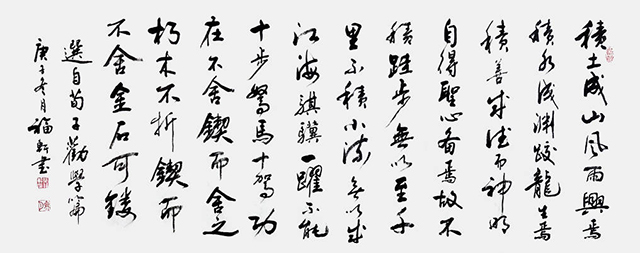 積土成山風雨興焉
積水成淵蛟龍生焉
積善成德而神明
自得聖心备焉故不
積跬步無以至千
里不積小流無以成
江海騏驥一躍不能
十步駑馬十駕功
在不舍鍥而舍之
朽木不折鍥而
不舍金石可鏤
選自荀子勸學篇
庚子冬月福軒書